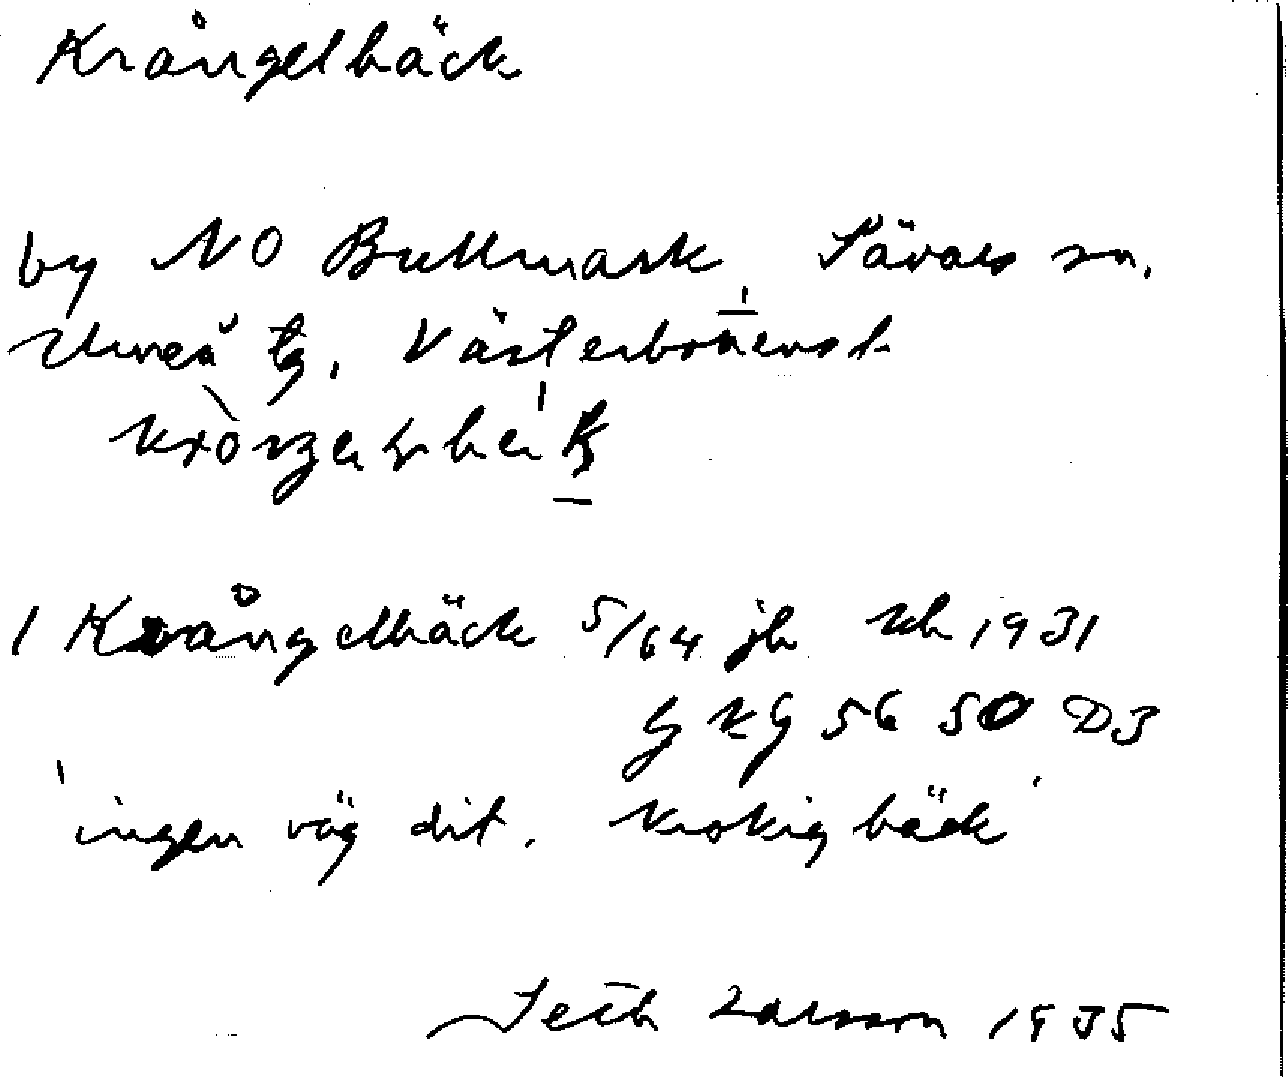 Krångelbäck
by NO Bullmark, Sävars sn.
Umeå tg, Västerbottens l.
1 Krångelbäck 5/64 jb kb 1931
GKG 56 50 D3
'ingen väg dit. Krokig bäck'
Seth Larsson 1935